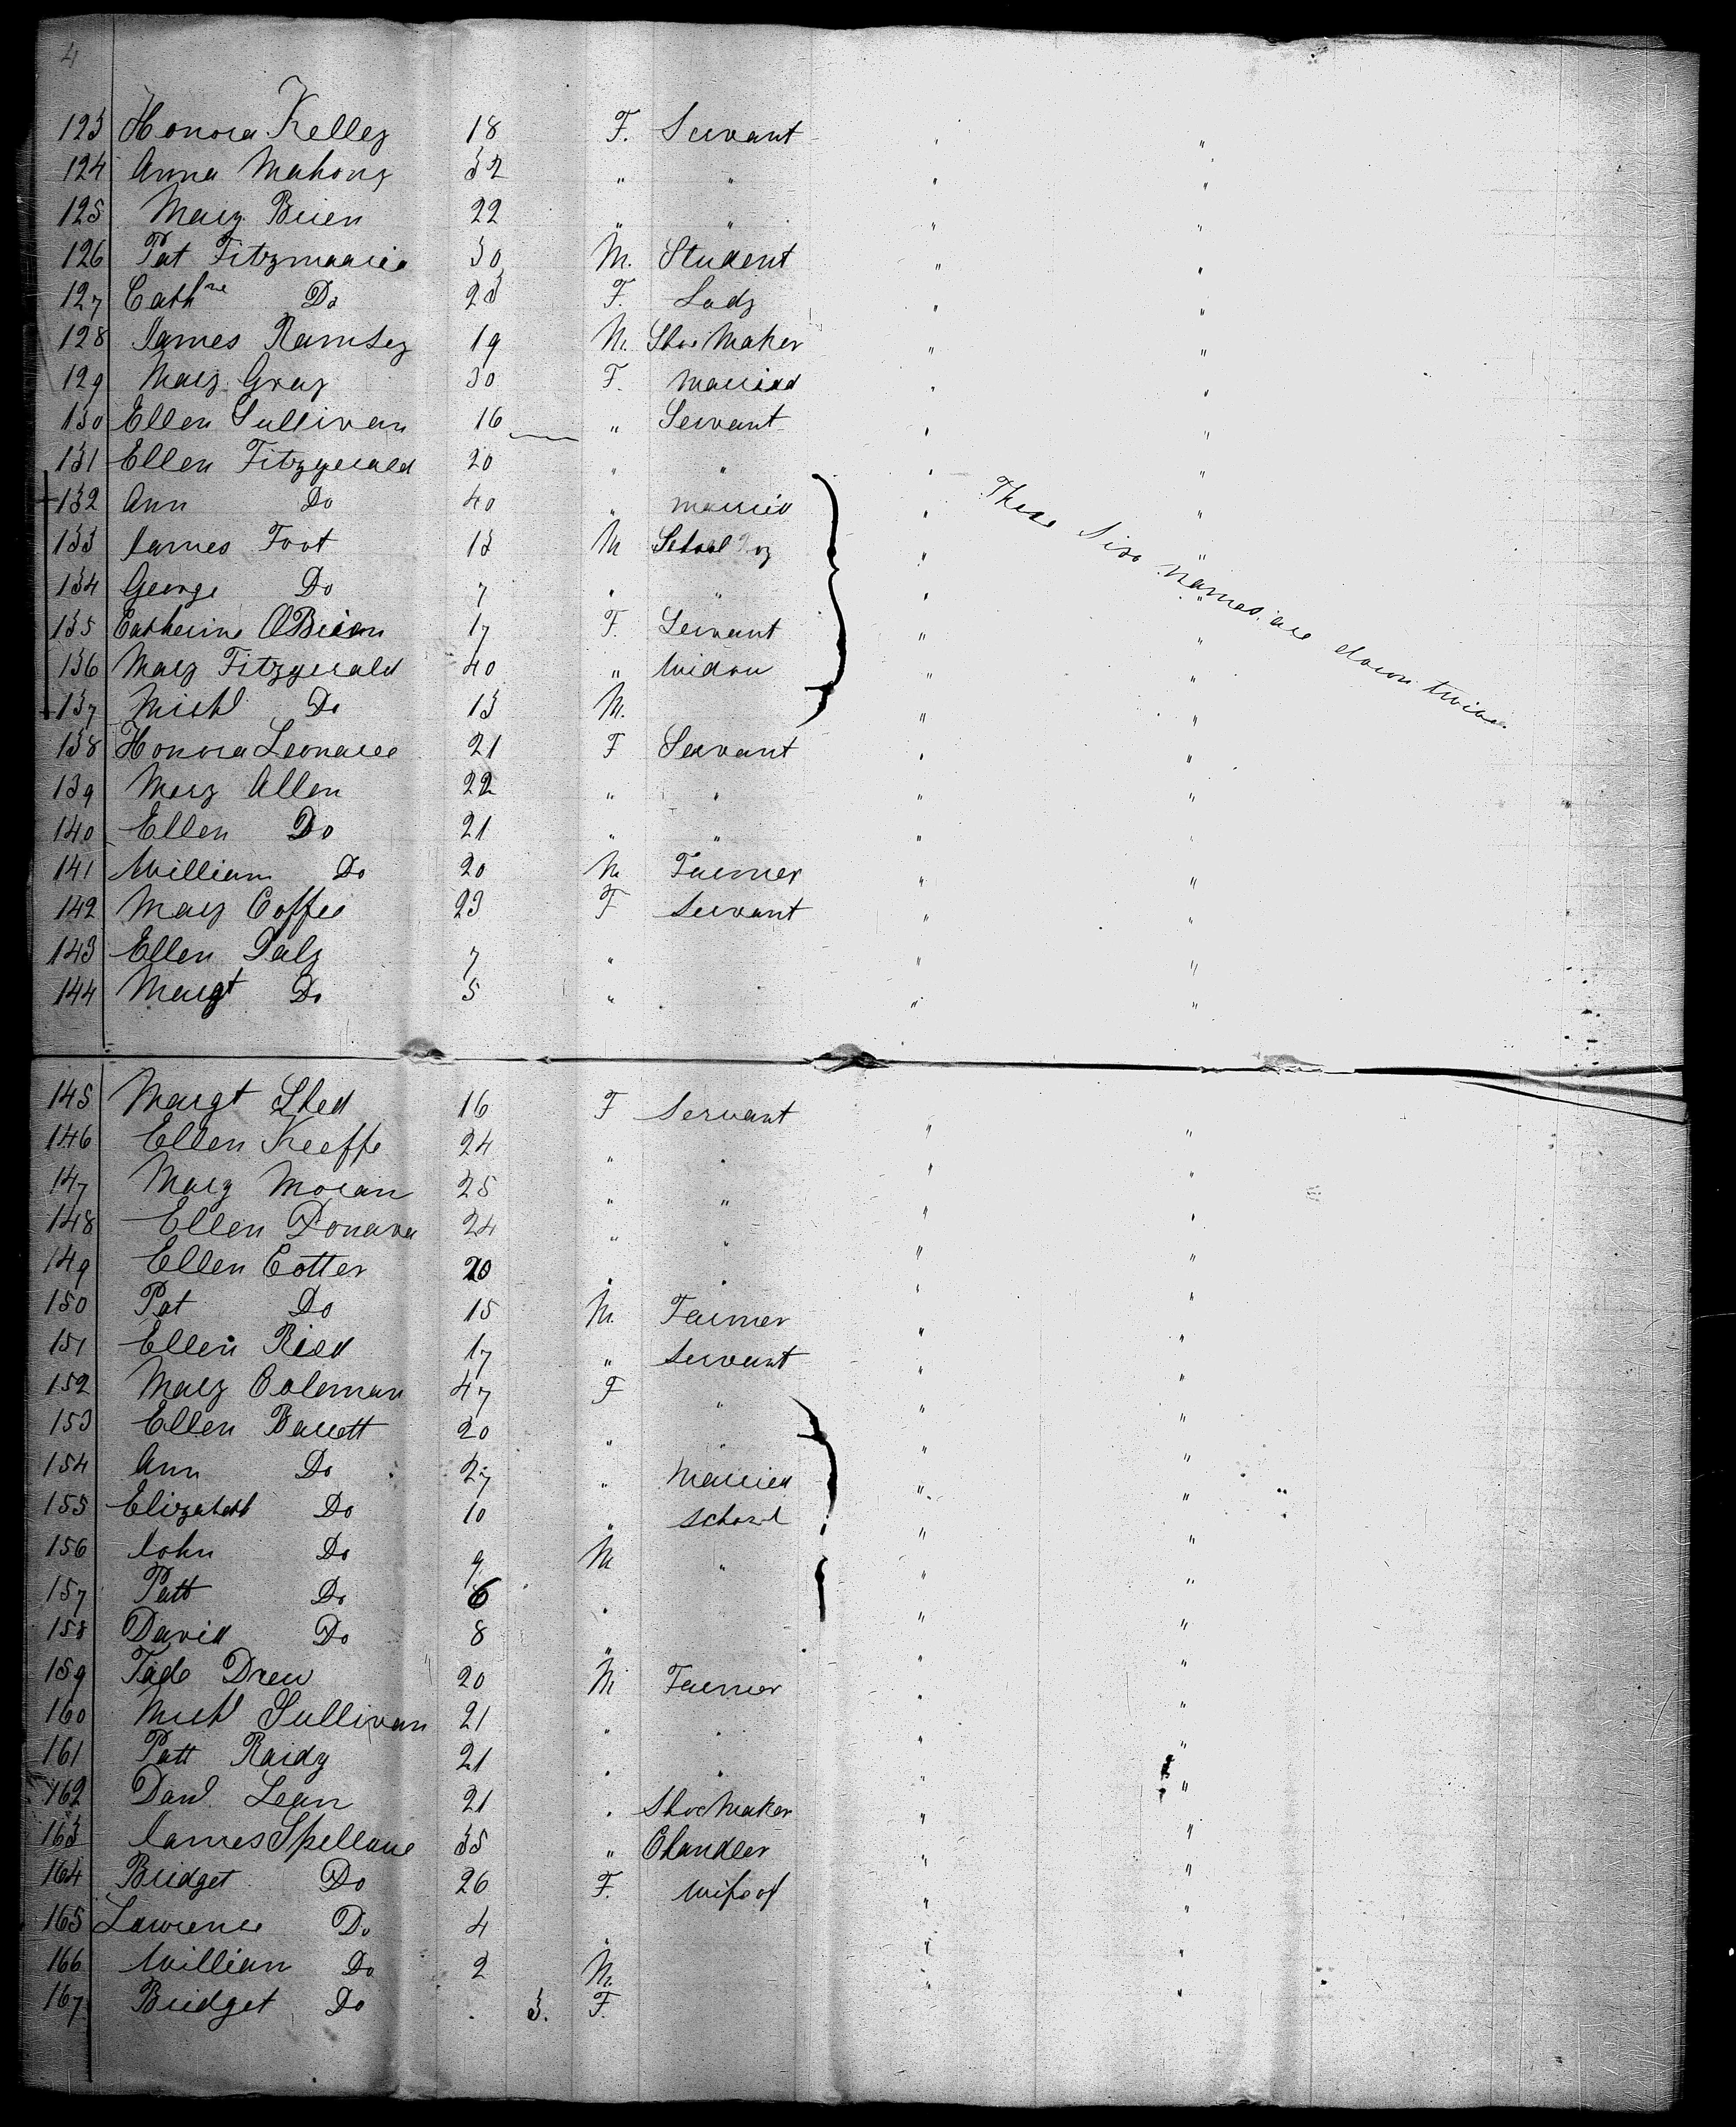 4
123 Honora Kelley 18 F. Servant " "
124 Anna Mahony 32 " " " "
125 Mary Brien 22 " " " "
126 Pat Fitzmaurice 30 M. Student " "
127 Cathre Do 23 F. Lady " "
128 James Ramsey 19 M. Shoe Maker " "
129 Mary Gray 30 F. Married " "
130 Ellen Sullivan 16 " Servant " "
131 Ellen Fitzgerald 20 " " " "
132 Ann Do 40 " married " "
These Six names are down twice
133 James Foot 13 M School Boy " "
134 George Do 7 " " " "
135 Catherine OBrien 17 F. Servant " "
136 Mary Fitzgerald 40 " Widow " "
137 Michl Do 13 M. " "
138 Honora Leonard 21 F Servant " "
139 Mary Allen 22 " " " "
140 Ellen Do 21 " " " "
141 William Do 20 M Farmer " "
142 Mary Coffee 23 F Servant " "
143 Ellen Daly 7 " " "
144 Margt Do 5 " " "
145 Margt Shed 16 F Servant " "
146 Ellen Keeffe 24 " " " "
147 Mary Moran 25 " " " "
148 Ellen Donava 24 " " " "
149 Ellen Cotter 20 " " " "
150 Pat Do 15 M. Farmer " "
151 Ellen Ried 17 " Servant " "
152 Mary Coleman 47 F " " "
153 Ellen Barrett 20 " " " "
154 Ann Do 27 " Married " "
155 Elizabeth Do 10 " School " "
156 John Do 9 M " " "
157 Patt Do 6 " " "
158 David Do 8 " " "
159 Tade Drew 20 M Farmer " "
160 Michl Sullivan 21 " " " "
161 Patt Raidy 21 " " " "
162 Danl. Lean 21 " Shoe Maker " "
163 James Spellane 35 " Chandler " "
164 Bridget Do 26 F. Wife of " "
165 Lawrence Do 4 " " "
166 William Do 2 M. " "
167 Bridget Do . 3. F.